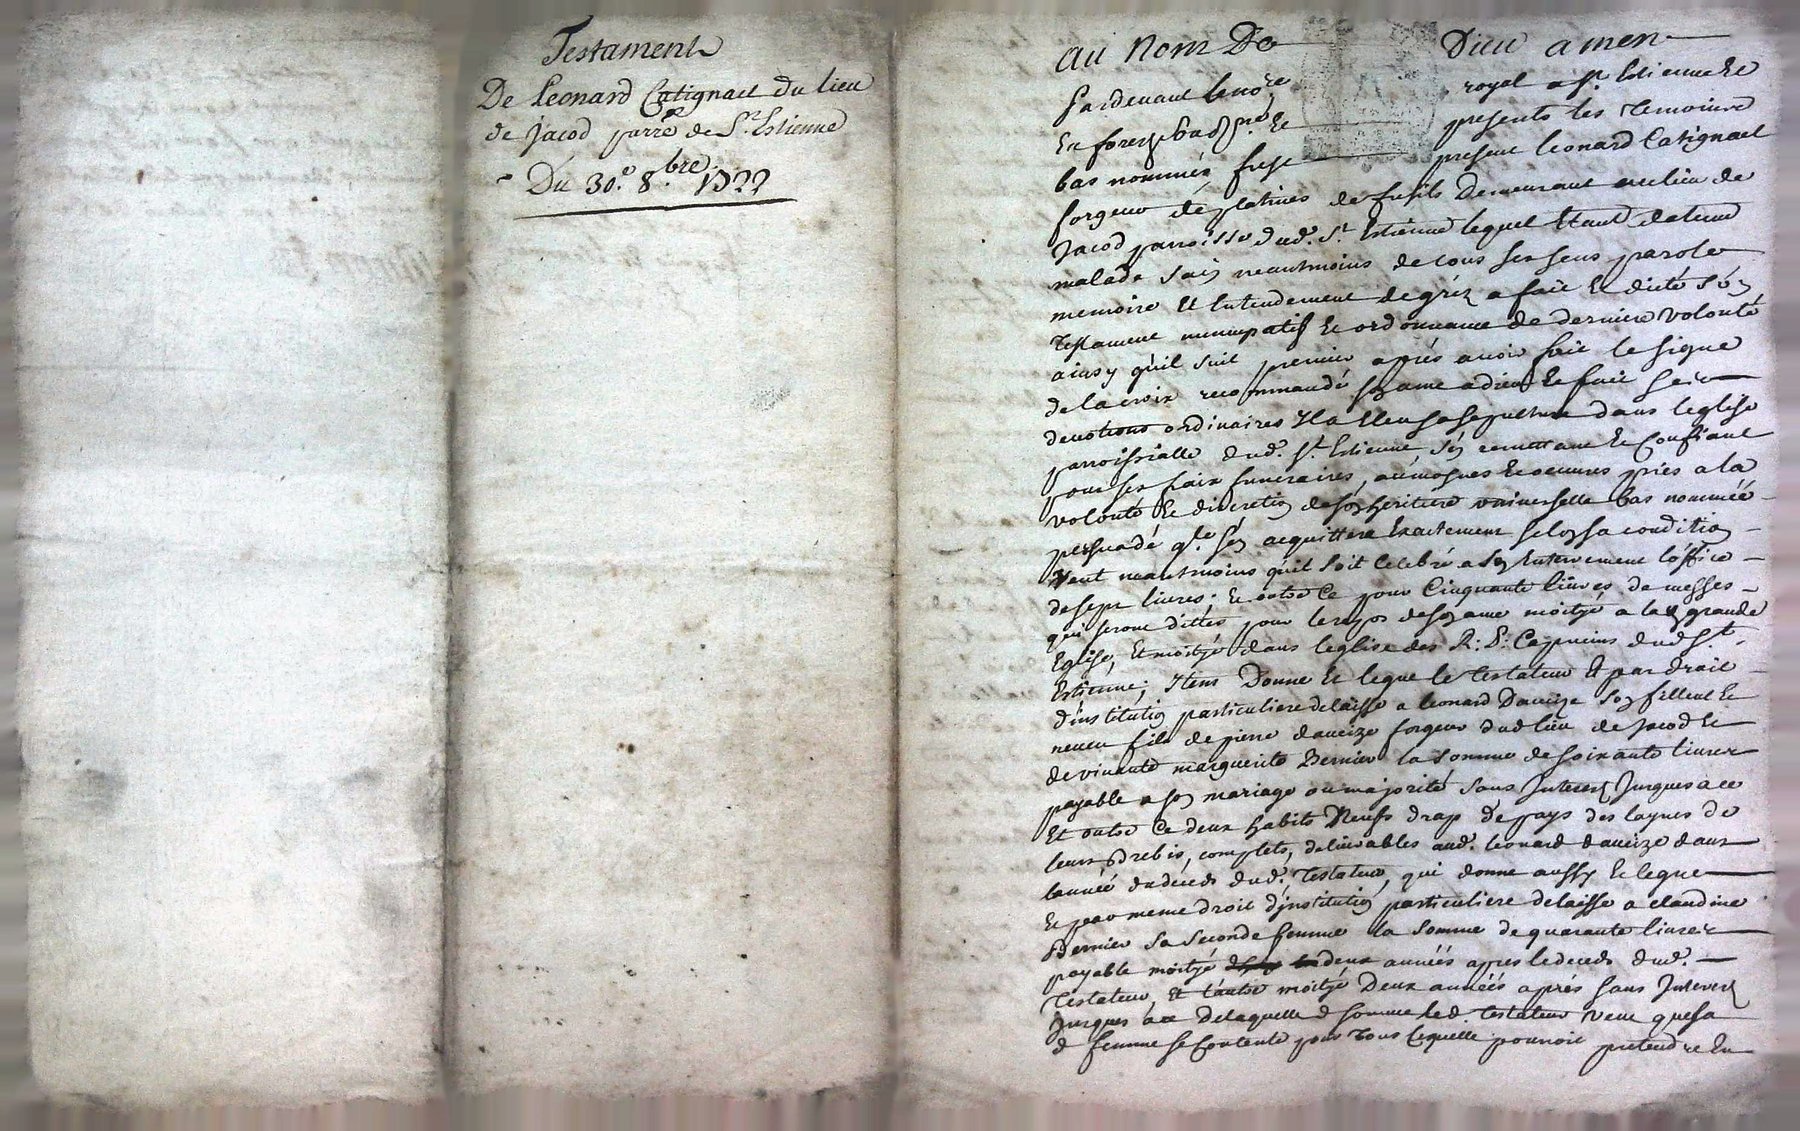 Testament
De Leonard Catignact du lieu
de Jacod parr.e de S.t Estienne
Du 30.e 8.bre 1722
au nom De Dieu amen
Pardevant le no.re royal a S.t Estienne Et
En forez Et presents les temoins
bas nommés fust present leonard Catignact
forgeur de platines de fusils Demeurant au lieu de
Jacod parroisse dud. S.t Estienne lequel Etant detenu
malade sain neantmoins de tous ses sens parole
memoire Et Entendement de gréz a fait Et dicté són
Testament nuncupatif Et ordonnance de derniere volonté
ainsy qu'il suit premier aprés avoir fait le signe
de la croix recommandé son ame a dieu Et fait ses
devotions ordinaires Il a Eleu sa sepulture dans leglise
parroissialle dud. S.t Estienne, s'en remettant Et Confiant
pour ses fraix funeraires, aumosnes Et oeuvres pies a la
volonté Et discretion de son heritiere universelle bas nommée
persuadé q.le s'en acquittera Exactement selon sa condition
Veut neantmoins qu'il soit Celebré a son Enterrement l'office
de sept livres; Et outre Ce pour Cinquante livres de messes
qui seront dittes pour le repos de son ame moityé a la grande
Eglise, Et moityé dans leglise des R: P: Capucins dud S.t
Estienne; Item Donne Et legue le testateur Et par droit
d'institution particuliere delaisse a leonard Daveize son filleul Et
neveu fils de pierre daveize forgeur dud lieu de Jacod Et
de vivante marguerite Bernier la somme de soixante livres
payable a son mariage ou majorité sans Interest Jusques a ce
Et outre Ce deux habits Neufs drap de pays des laynes de
leurs Brebis, complets, delivrables aud. leonard daveize dans
lannée du déced dud. Testateur, qui donne aussy Et legue
Et par meme droit d'institution particuliere delaisse a claudine
Bernier sa seconde femme la somme de quarante livres
payable moityé deux années apres le deced dud.
Testateur, Et l'autre moityé Deux années aprés sans Interest
Jusques a ce De laquelle d somme led. testateur veut que sa
d femme se Contente pour tous lequelle pourroit pretendre En